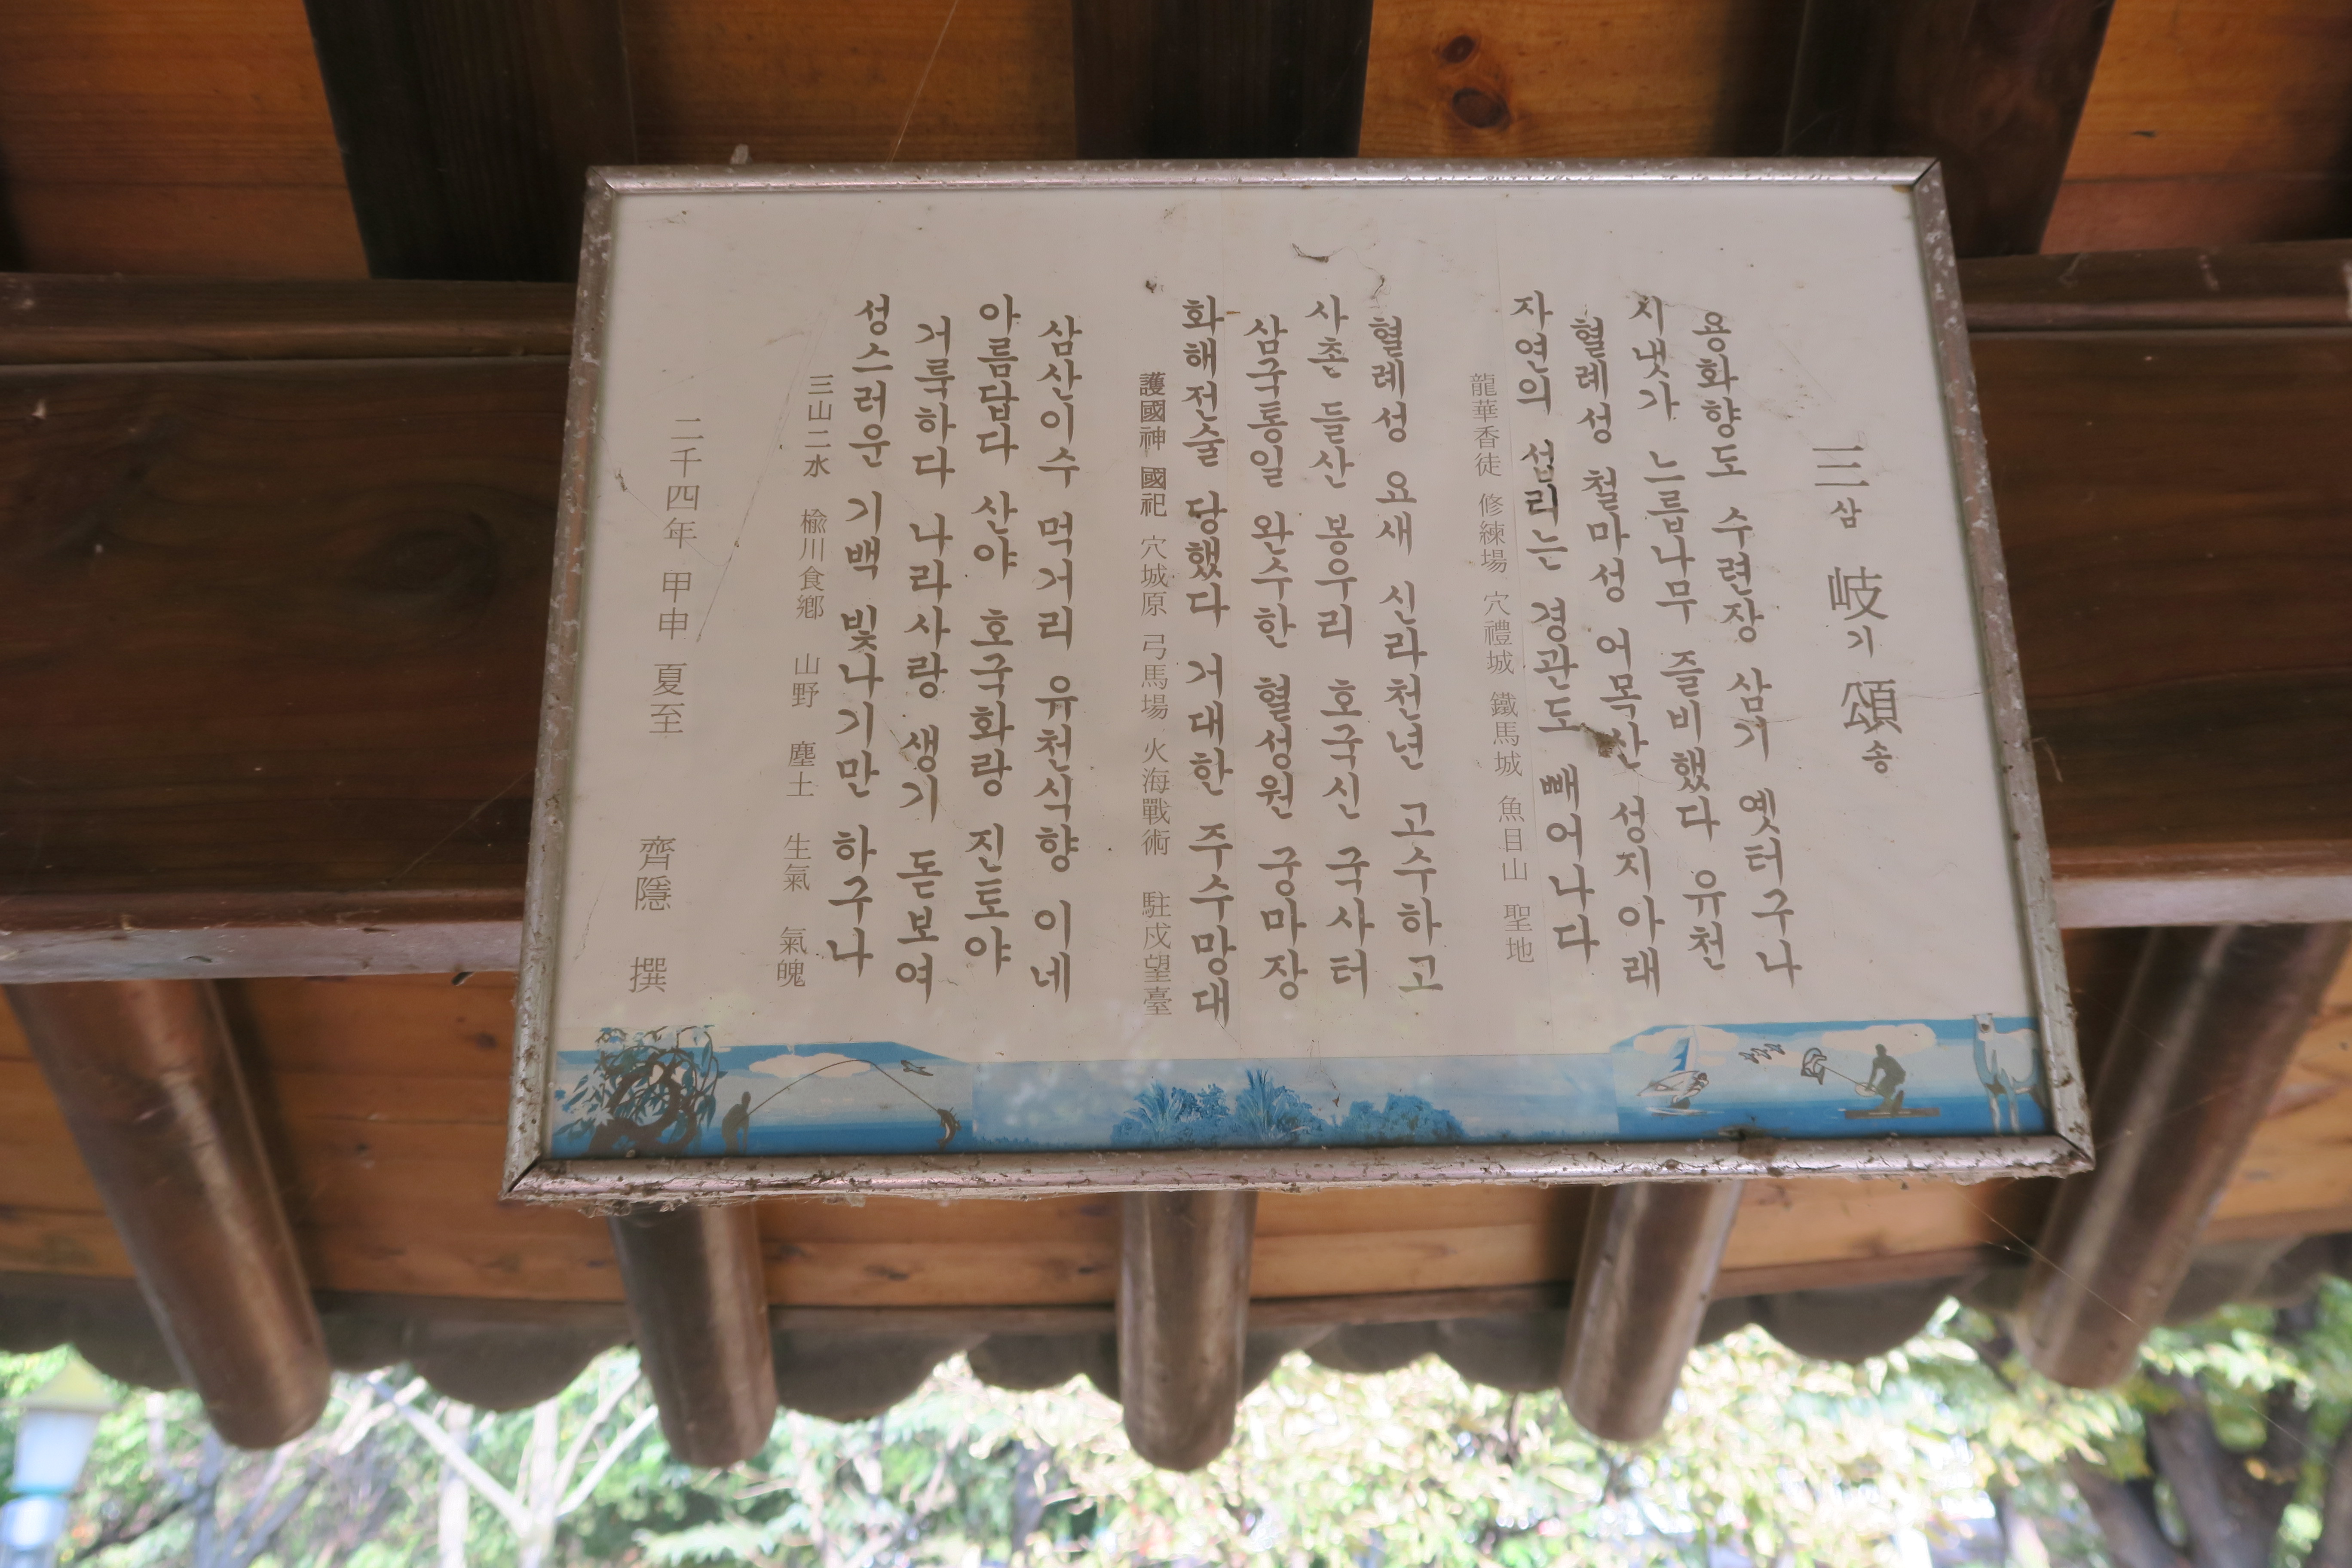 三삼 岐기 頌송
용화향도 수련장 삼기 옛터구나
시냇가 느릅나무 즐비했다 유천
혈례성 철마성 어목산 성지아래
자연의 섭리는 경관도 빼어나다
龍華香徒 修練場 穴禮城 鐵馬城 魚目山 聖地
혈례성 요새 신라천년 고수하고
사촌 들산 봉우리 호국신 국사터
삼국통일 완수한 혈성원 궁마장
화해전술 당했다 거대한 주수망대
護國神 國祀 穴城原 弓馬場 火海戰術 駐戍望臺
삼산이수 먹거리 유천식향 이네
아름답다 산야 호국화랑 진토야
거룩하다 나라사랑 생기 돋보여
성스러운 기백 빛나기만 하구나
三山二水 楡川食鄕 山野 塵土 生氣 氣魄
二千四年 甲申 夏至 齊隱 撰